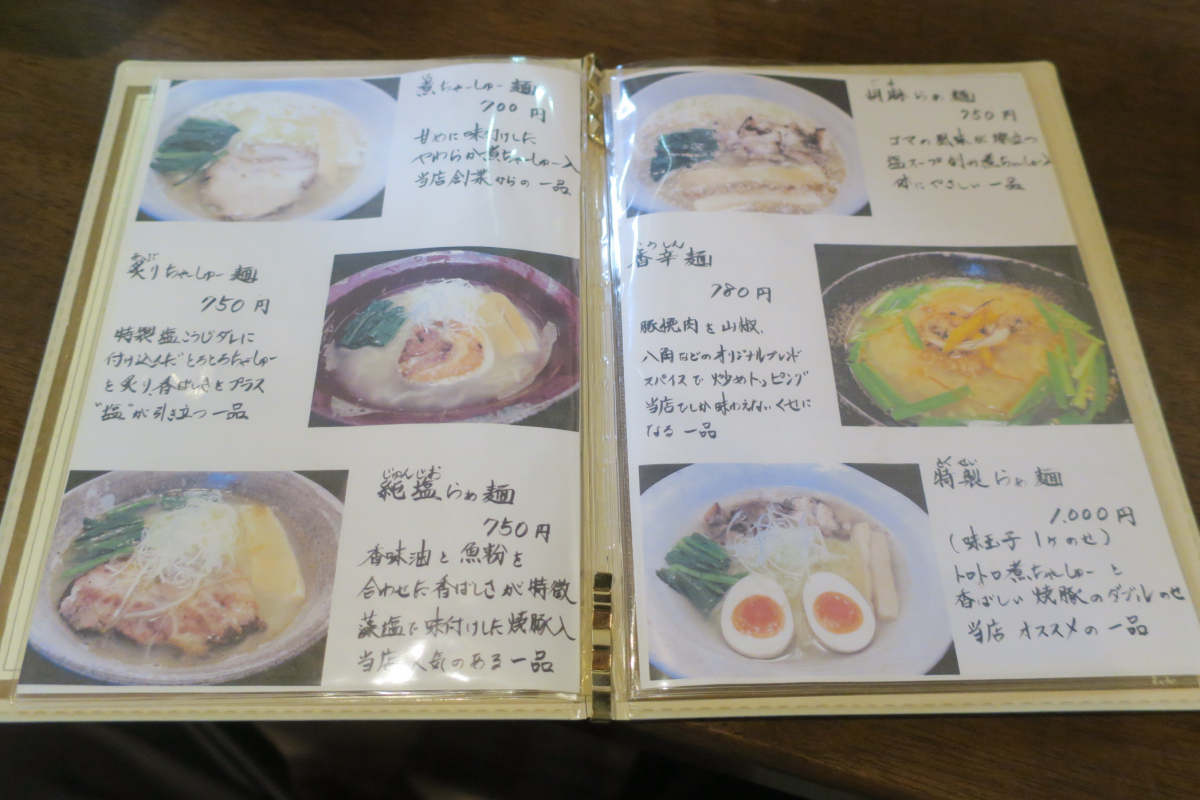 煮ちゃーしゅー麺
700円
甘めに味付けした
やわらか煮ちゃーしゅー入
当店創業からの一品
あぶ
炙りちゃーしゅー麺
750円
特製塩こうじダレに
付け込んだとろとろちゃーしゅー
を炙り、香ばしさをプラス
"塩"が引き立つ一品
じゅんじお
純塩らぁ麺
750円
香味油と魚粉を
合わせた香ばしさが特徴
藻塩で味付けした焼豚入
当店人気のある一品
ごま
胡麻らぁ麺
750円
ゴマの風味が際立つ
塩スープ 刻み煮ちゃーしゅー入
体にやさしい一品
こうしん
香辛麺
780円
豚挽肉を山椒、
八角などのオリジナルブレンド
スパイスで炒めトッピング
当店でしか味わえないくせに
なる一品
とくせい
特製らぁ麺
1.000円
(味玉子 1ケのせ)
トロトロ煮ちゃーしゅーと
香ばしい焼豚のダブルのせ
当店オススメの一品